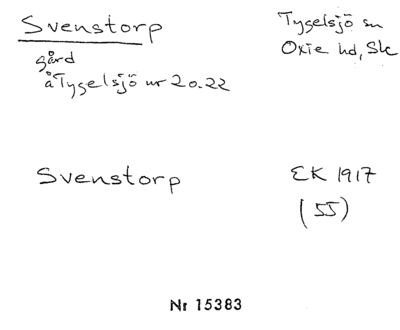 Svenstorp
Tygelsjö sn
Oxie hd, Sk
gård
å Tygelsjö nr 20.22
Svenstorp
EK 1917
(55)
Nr 15383